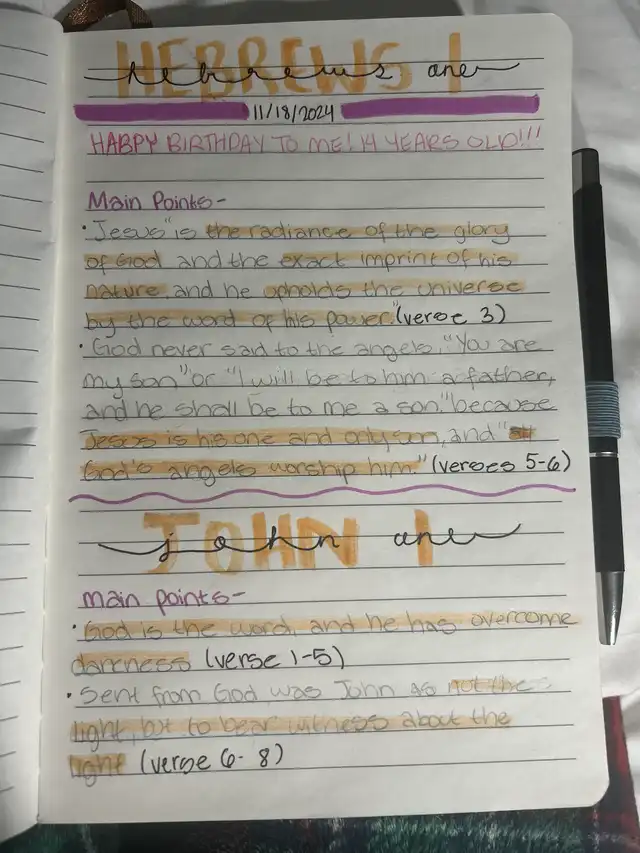 HEBREWS 1
hebrews one
11/18/2024
HAPPY BIRTHDAY TO ME! 14 YEARS OLD!!!
Main Points-
• Jesus "is the radiance of the glory
of God and the exact imprint of his
nature, and he upholds the universe
by the word of his power." (verse 3)
• God never said to the angels, "You are
my son" or "I will be to him a father,
and he shall be to me a son." because
Jesus is his one and only son, and "
God's angels worship him." (verses 5-6)
JOHN 1
john one
main points-
• God is the word, and he has overcome
darkness (verse 1-5)
• Sent from God, was John as not the
light, but to bear witness about the
light (verse 6-8)